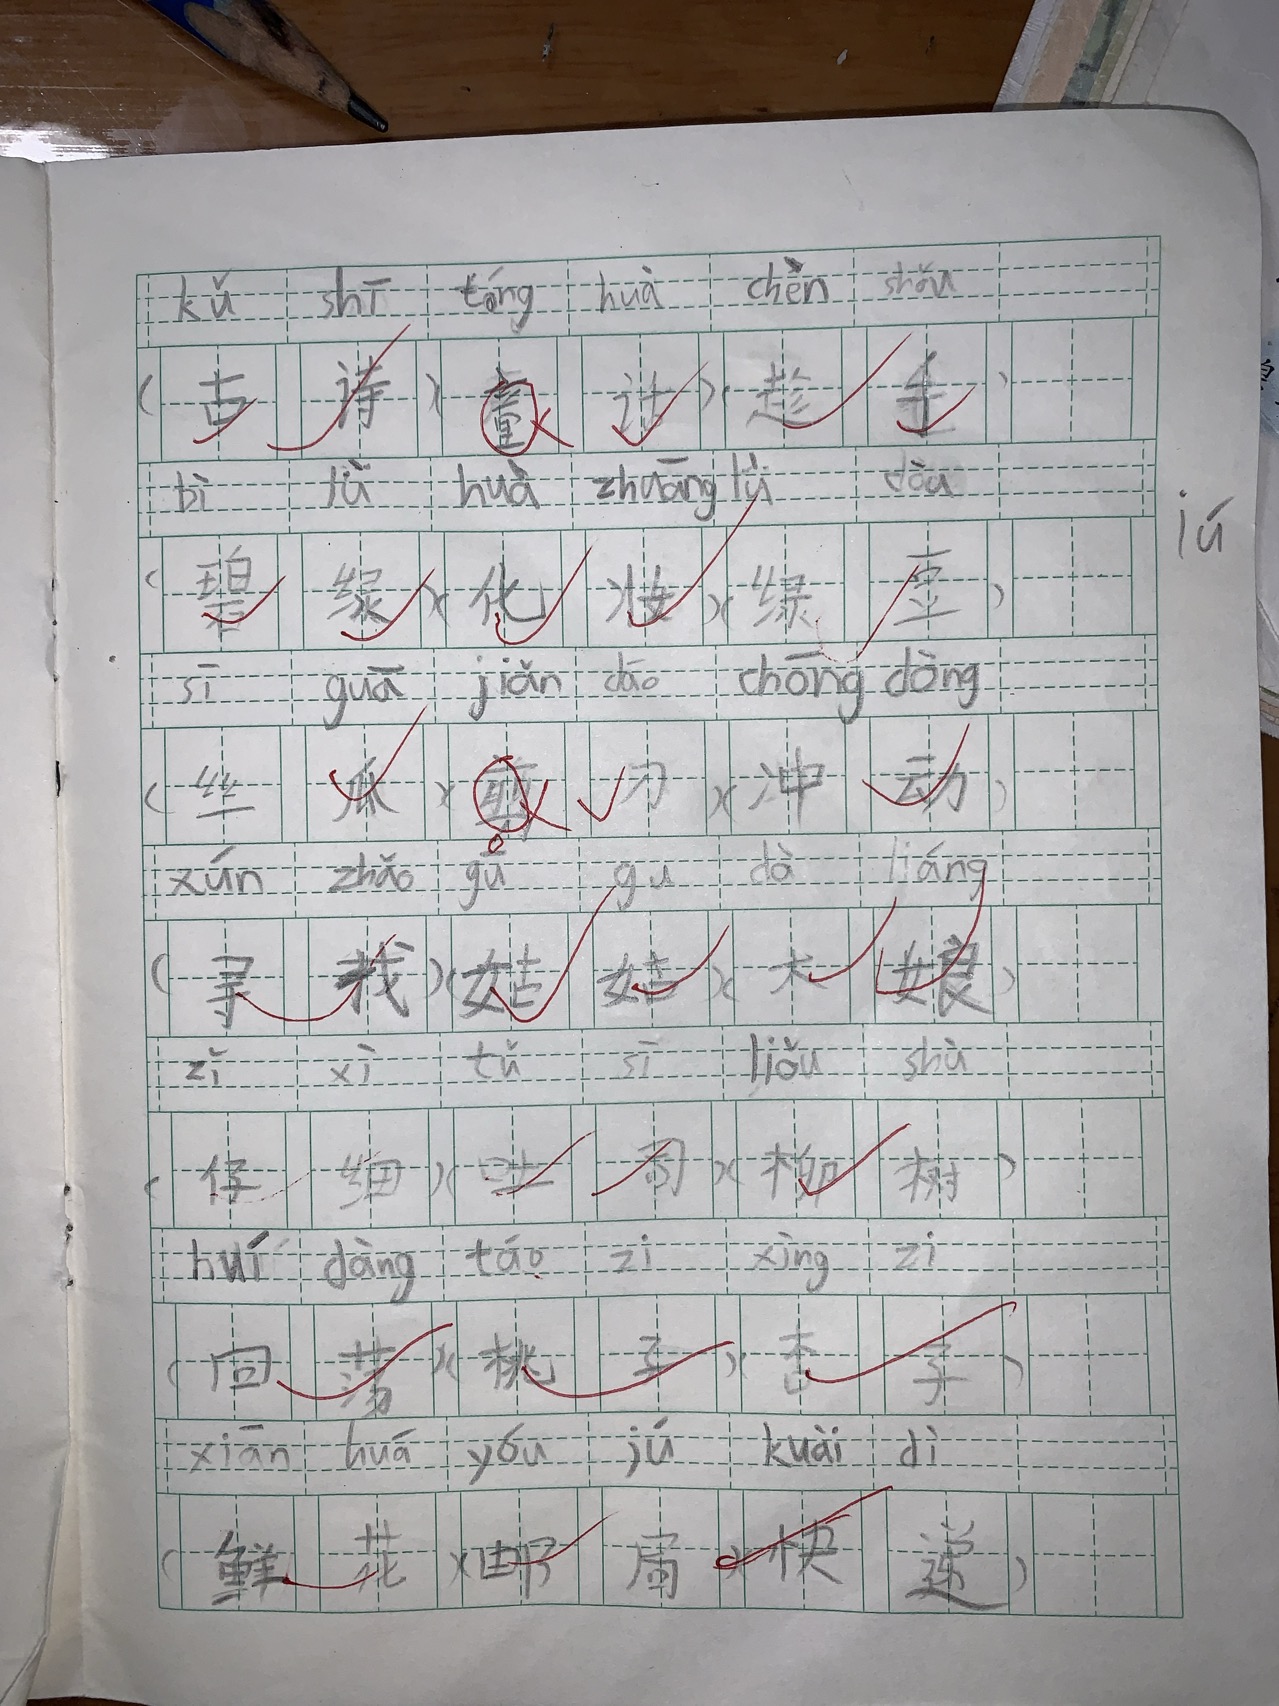 kǔ shī tóng huà chèn shǒu
(古诗)(童话)(趁手)
bì lǜ huà zhuāng lǜ dòu
(碧绿)(化妆)(绿豆)
jú
sī guā jiǎn dāo chōng dòng
(丝瓜)(剪刀)(冲动)
xún zhǎo gū gu dà liáng
(寻找)(姑姑)(大娘)
zǐ xì tǔ sī liǔu shù
(仔细)(吐司)(柳树)
huí dàng táo zi xìng zi
(回荡)(桃子)(杏子)
xiān huā yóu jú kuài dì
(鲜花)(邮局)(快递)